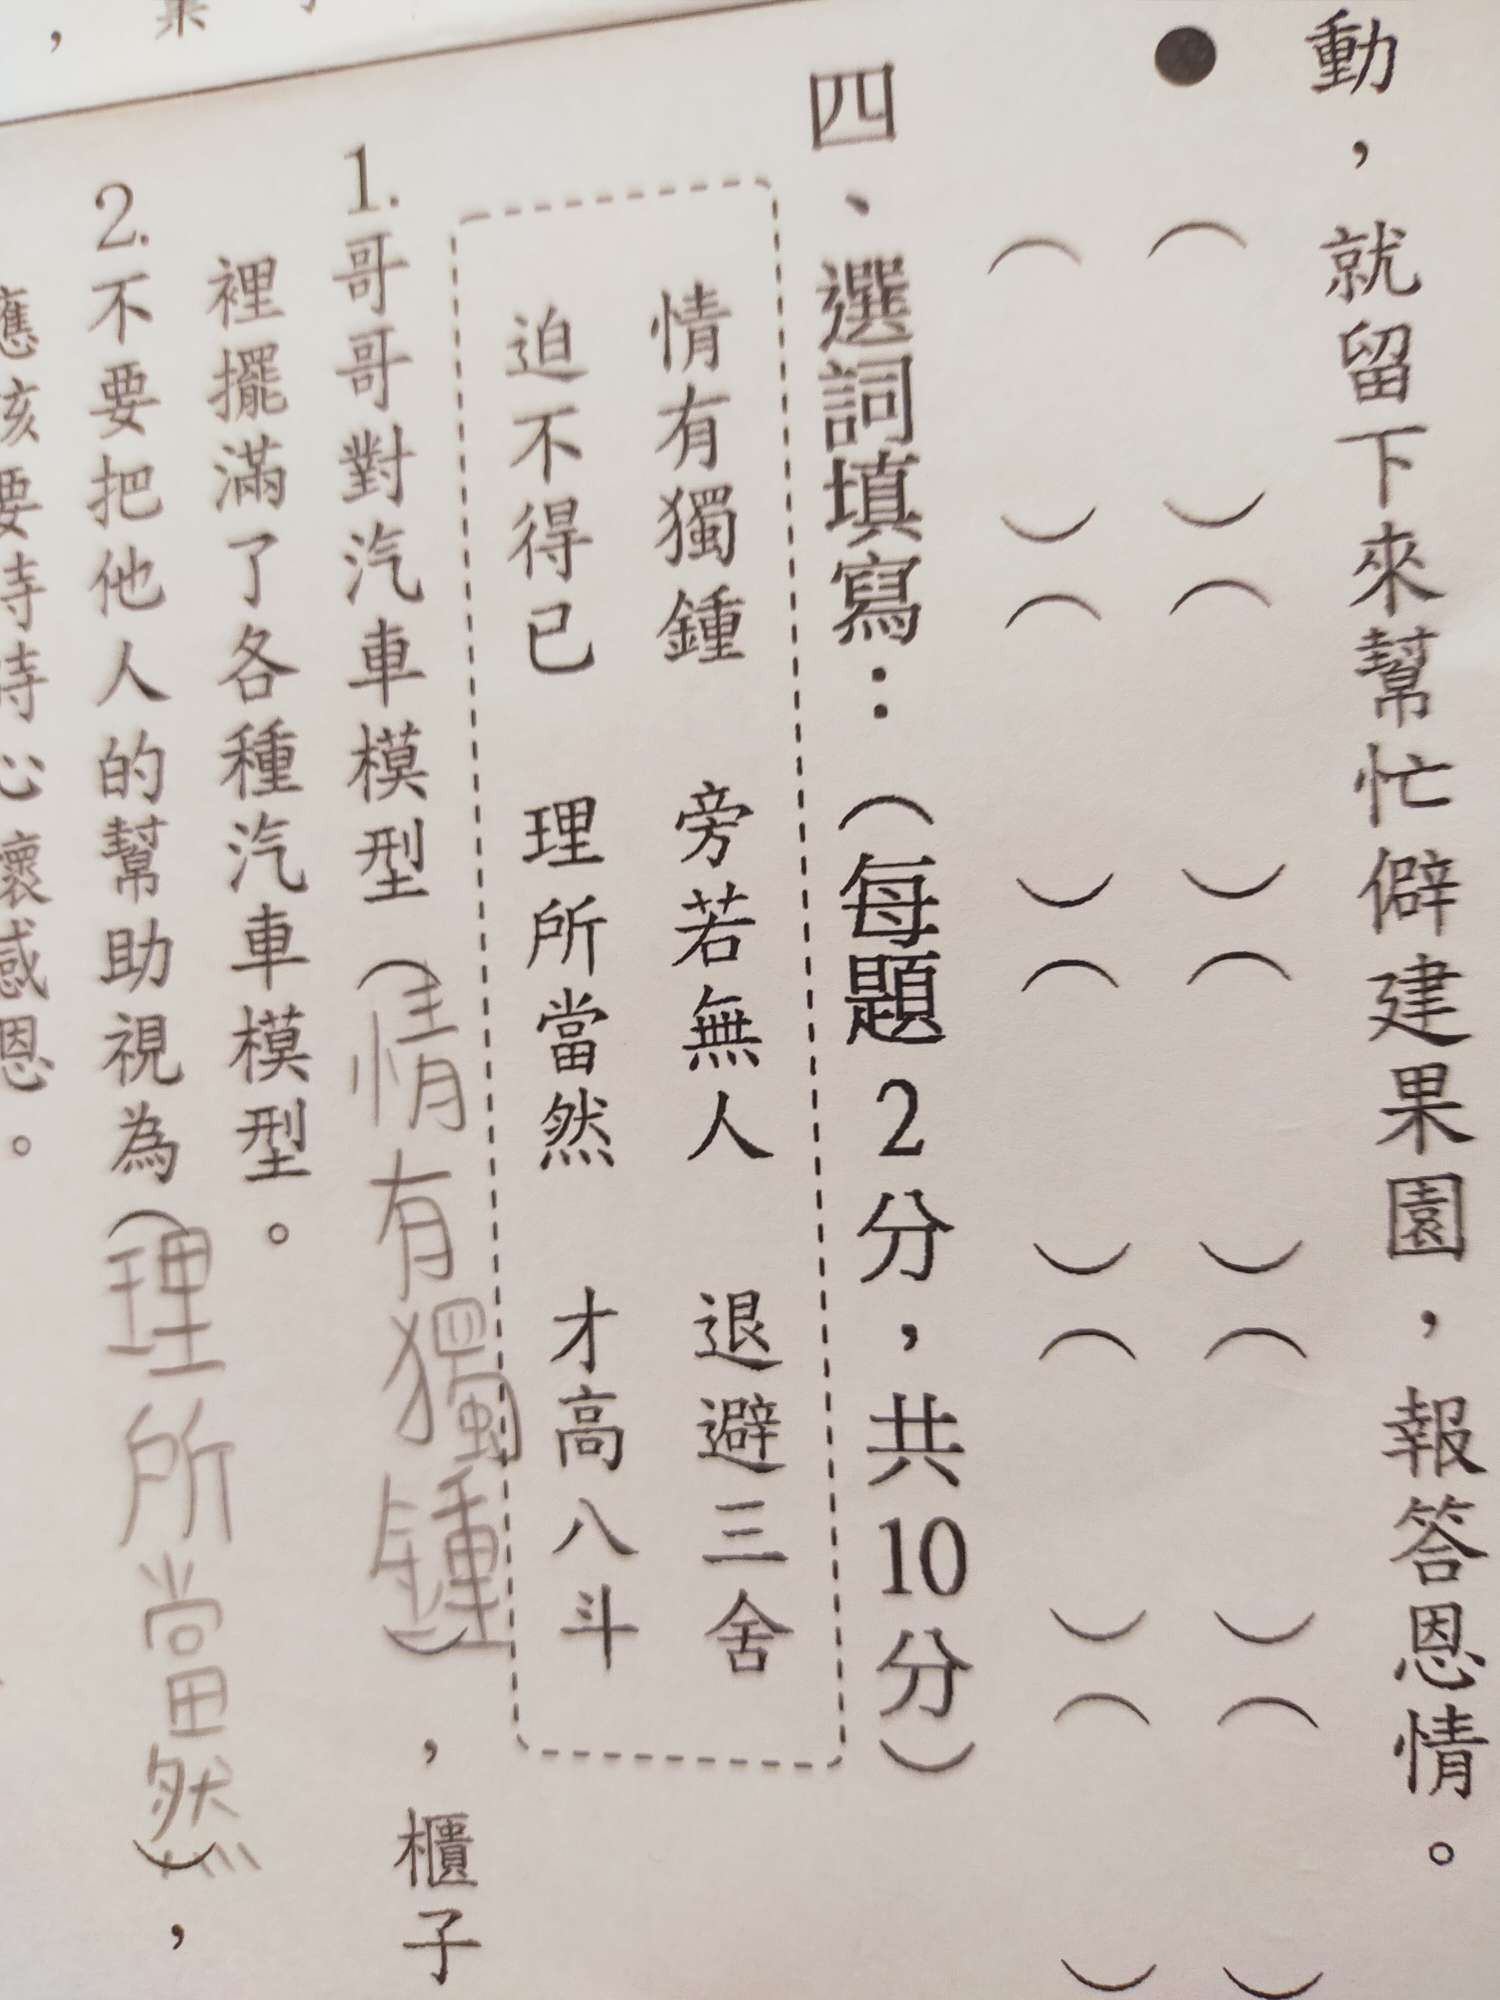 動，就留下來幫忙僻建果園，報答恩情。
●（　）（　）（　）（　）（　）
（　）（　）（　）（　）（　）
四、選詞填寫：（每題2分，共10分）
情有獨鍾　旁若無人　退避三舍
迫不得已　理所當然　才高八斗
1.哥哥對汽車模型（情有獨鍾），櫃子
裡擺滿了各種汽車模型。
2.不要把他人的幫助視為（理所當然），
應該要時時心懷感恩。